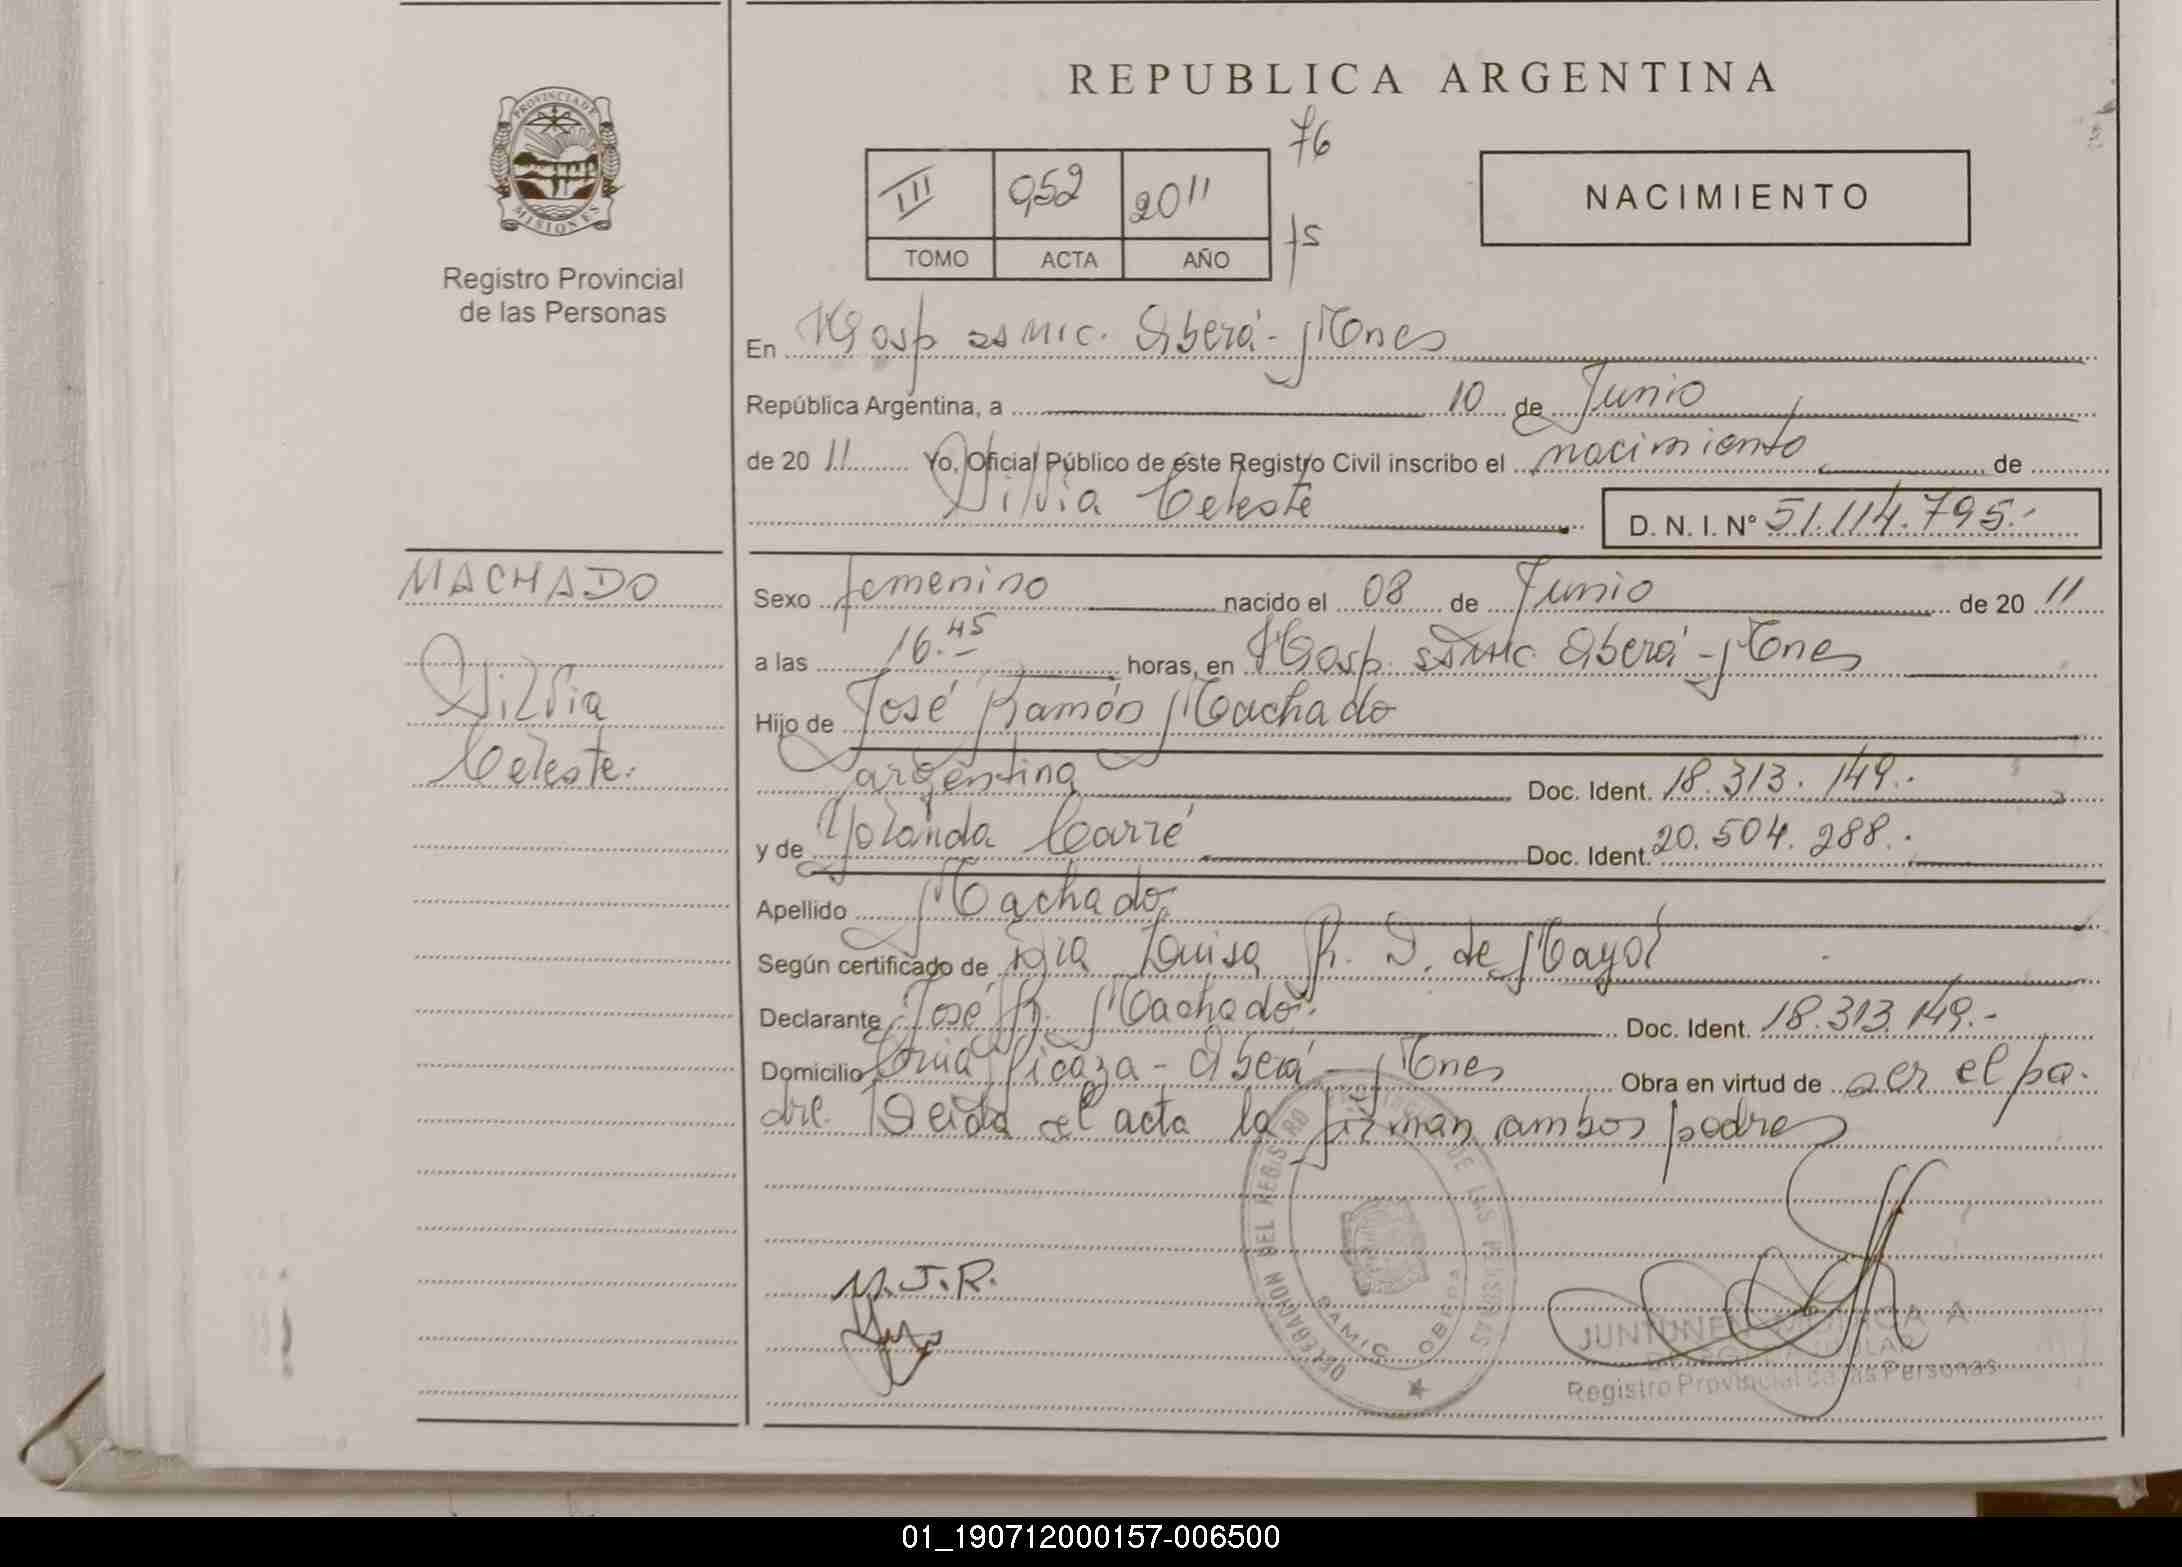 REPUBLICA ARGENTINA
PROVINCIA DE
MISIONES
Registro Provincial
de las Personas
76
fs
III 952 2011
TOMO ACTA AÑO
NACIMIENTO
En Hosp Oberá - Mones
República Argentina, a 10 de Junio
de 2011 Yo, Oficial Público de este Registro Civil inscribo el nacimiento de
Silvia Celeste D. N. I. N° 51.114.795.-
MACHADO
Silvia
Celeste.
Sexo femenino nacido el 08 de Junio de 2011
a las 16.45 horas, en Hosp. Oberá - Mones
Hijo de José Ramón Machado
argentina Doc. Ident. 18.313.149.-
y de Yolanda Carré Doc. Ident. 20.504.288.-
Apellido Machado
Según certificado de Luisa R. D. de Mayol
Declarante José R. Machado. Doc. Ident. 18.313.149.-
Domicilio Picaza - Oberá - Mones Obra en virtud de ser el pa-
dre. Leida el acta la firman ambos padres
M.J.R.
DELEGACION DEL REGISTRO PROVINCIAL DE LAS PERSONAS
SAMIC OBERA
Registro Provincial de las Personas
01_190712000157-006500